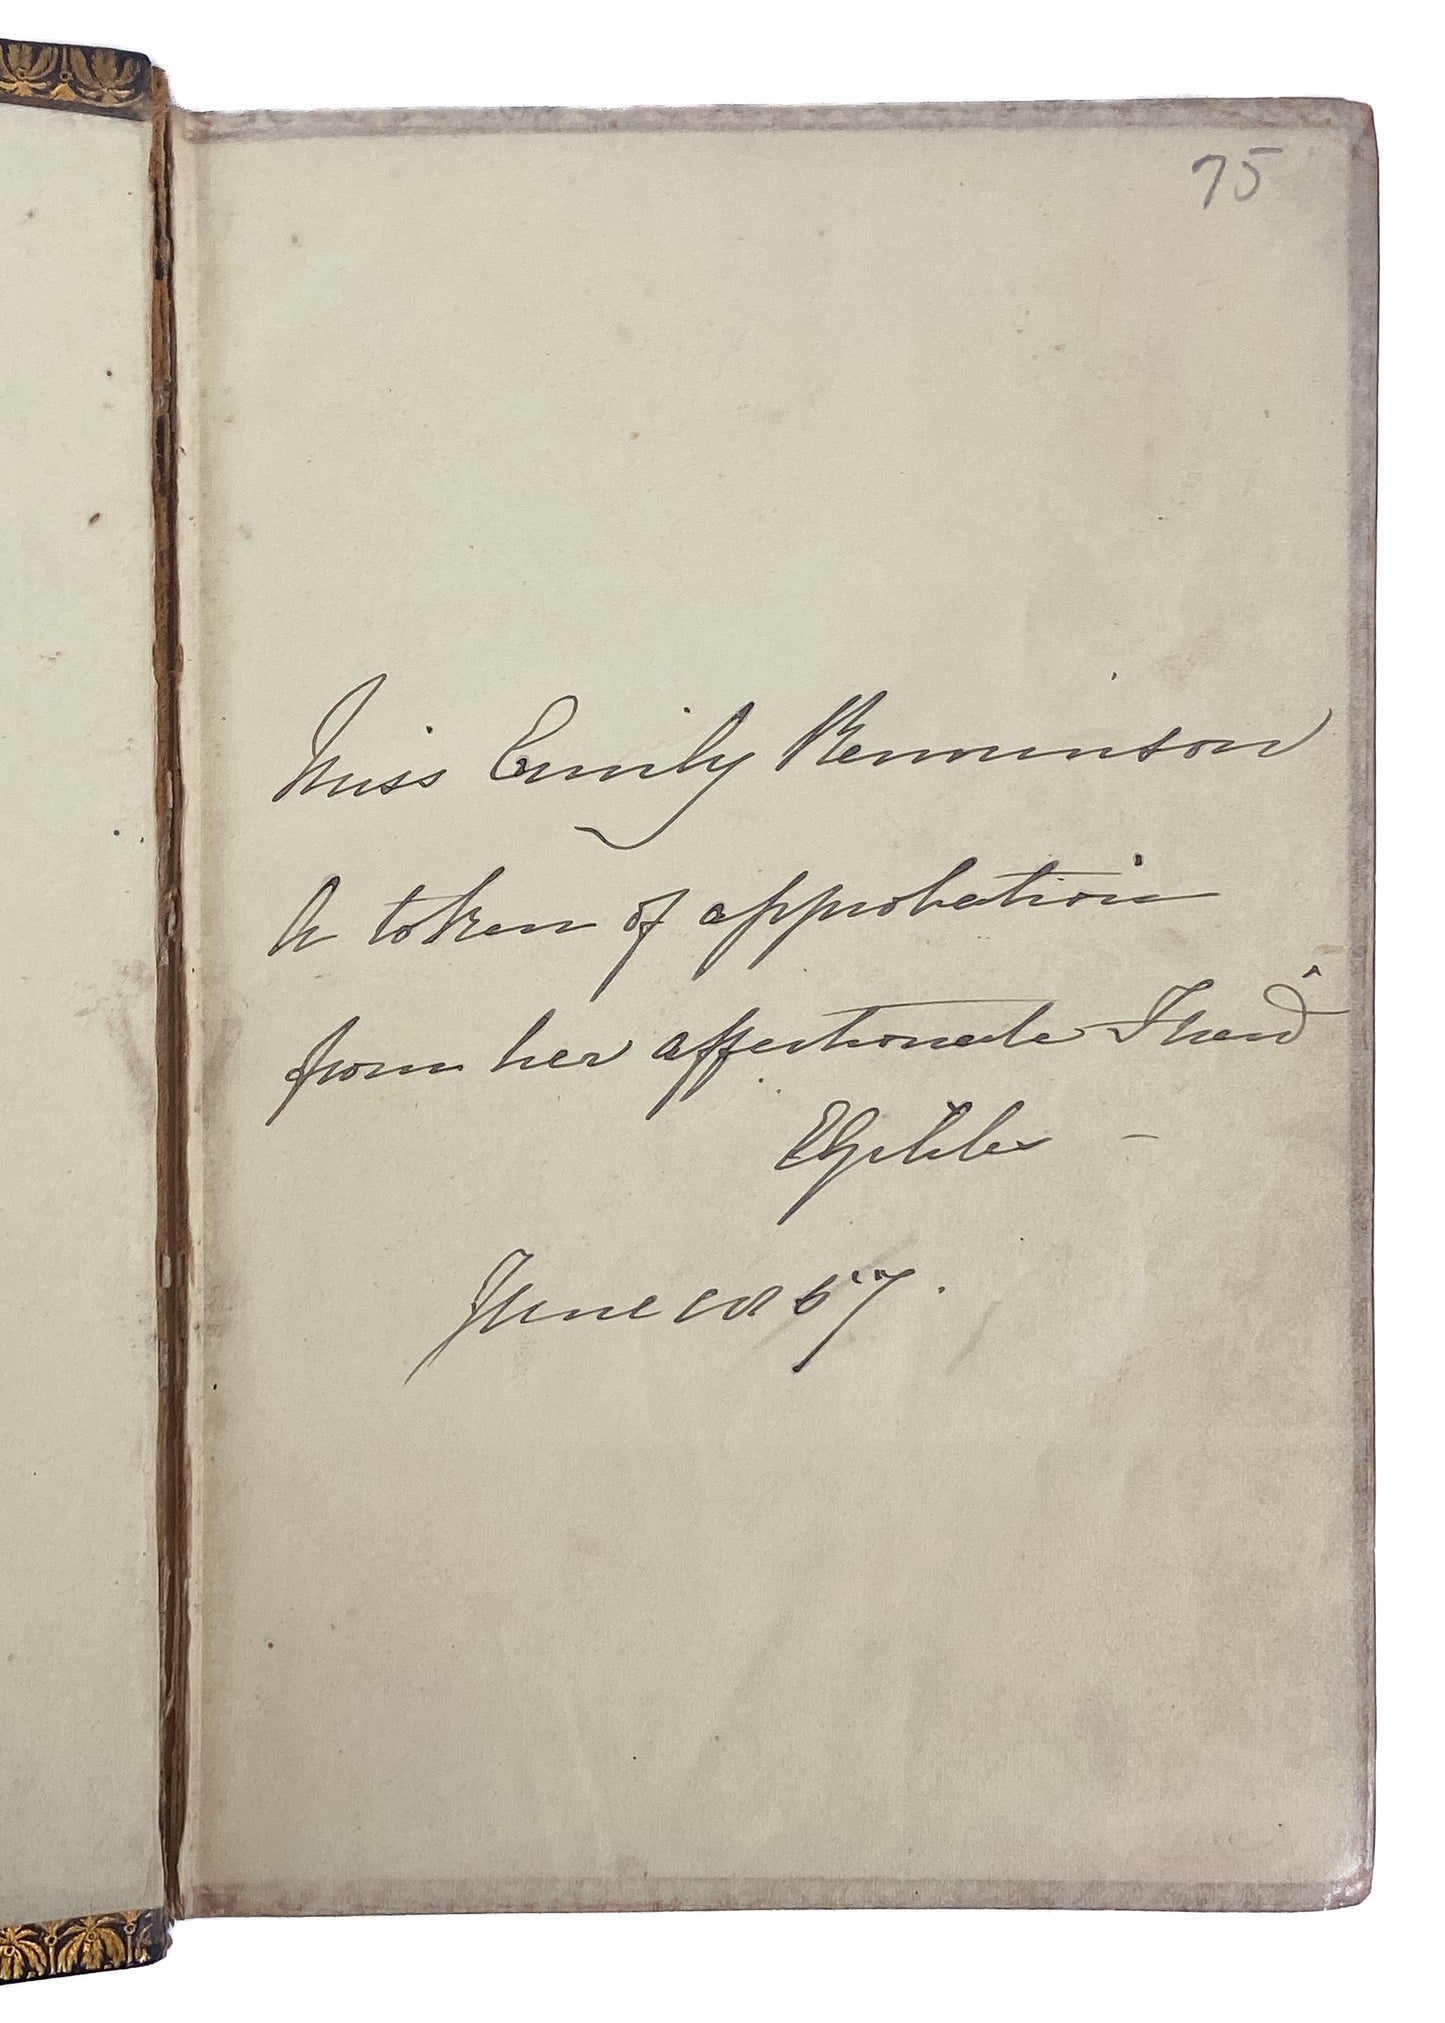 75
Miss Emily Remminson
A token of approbation
from her affectionate Friend
June 1857.